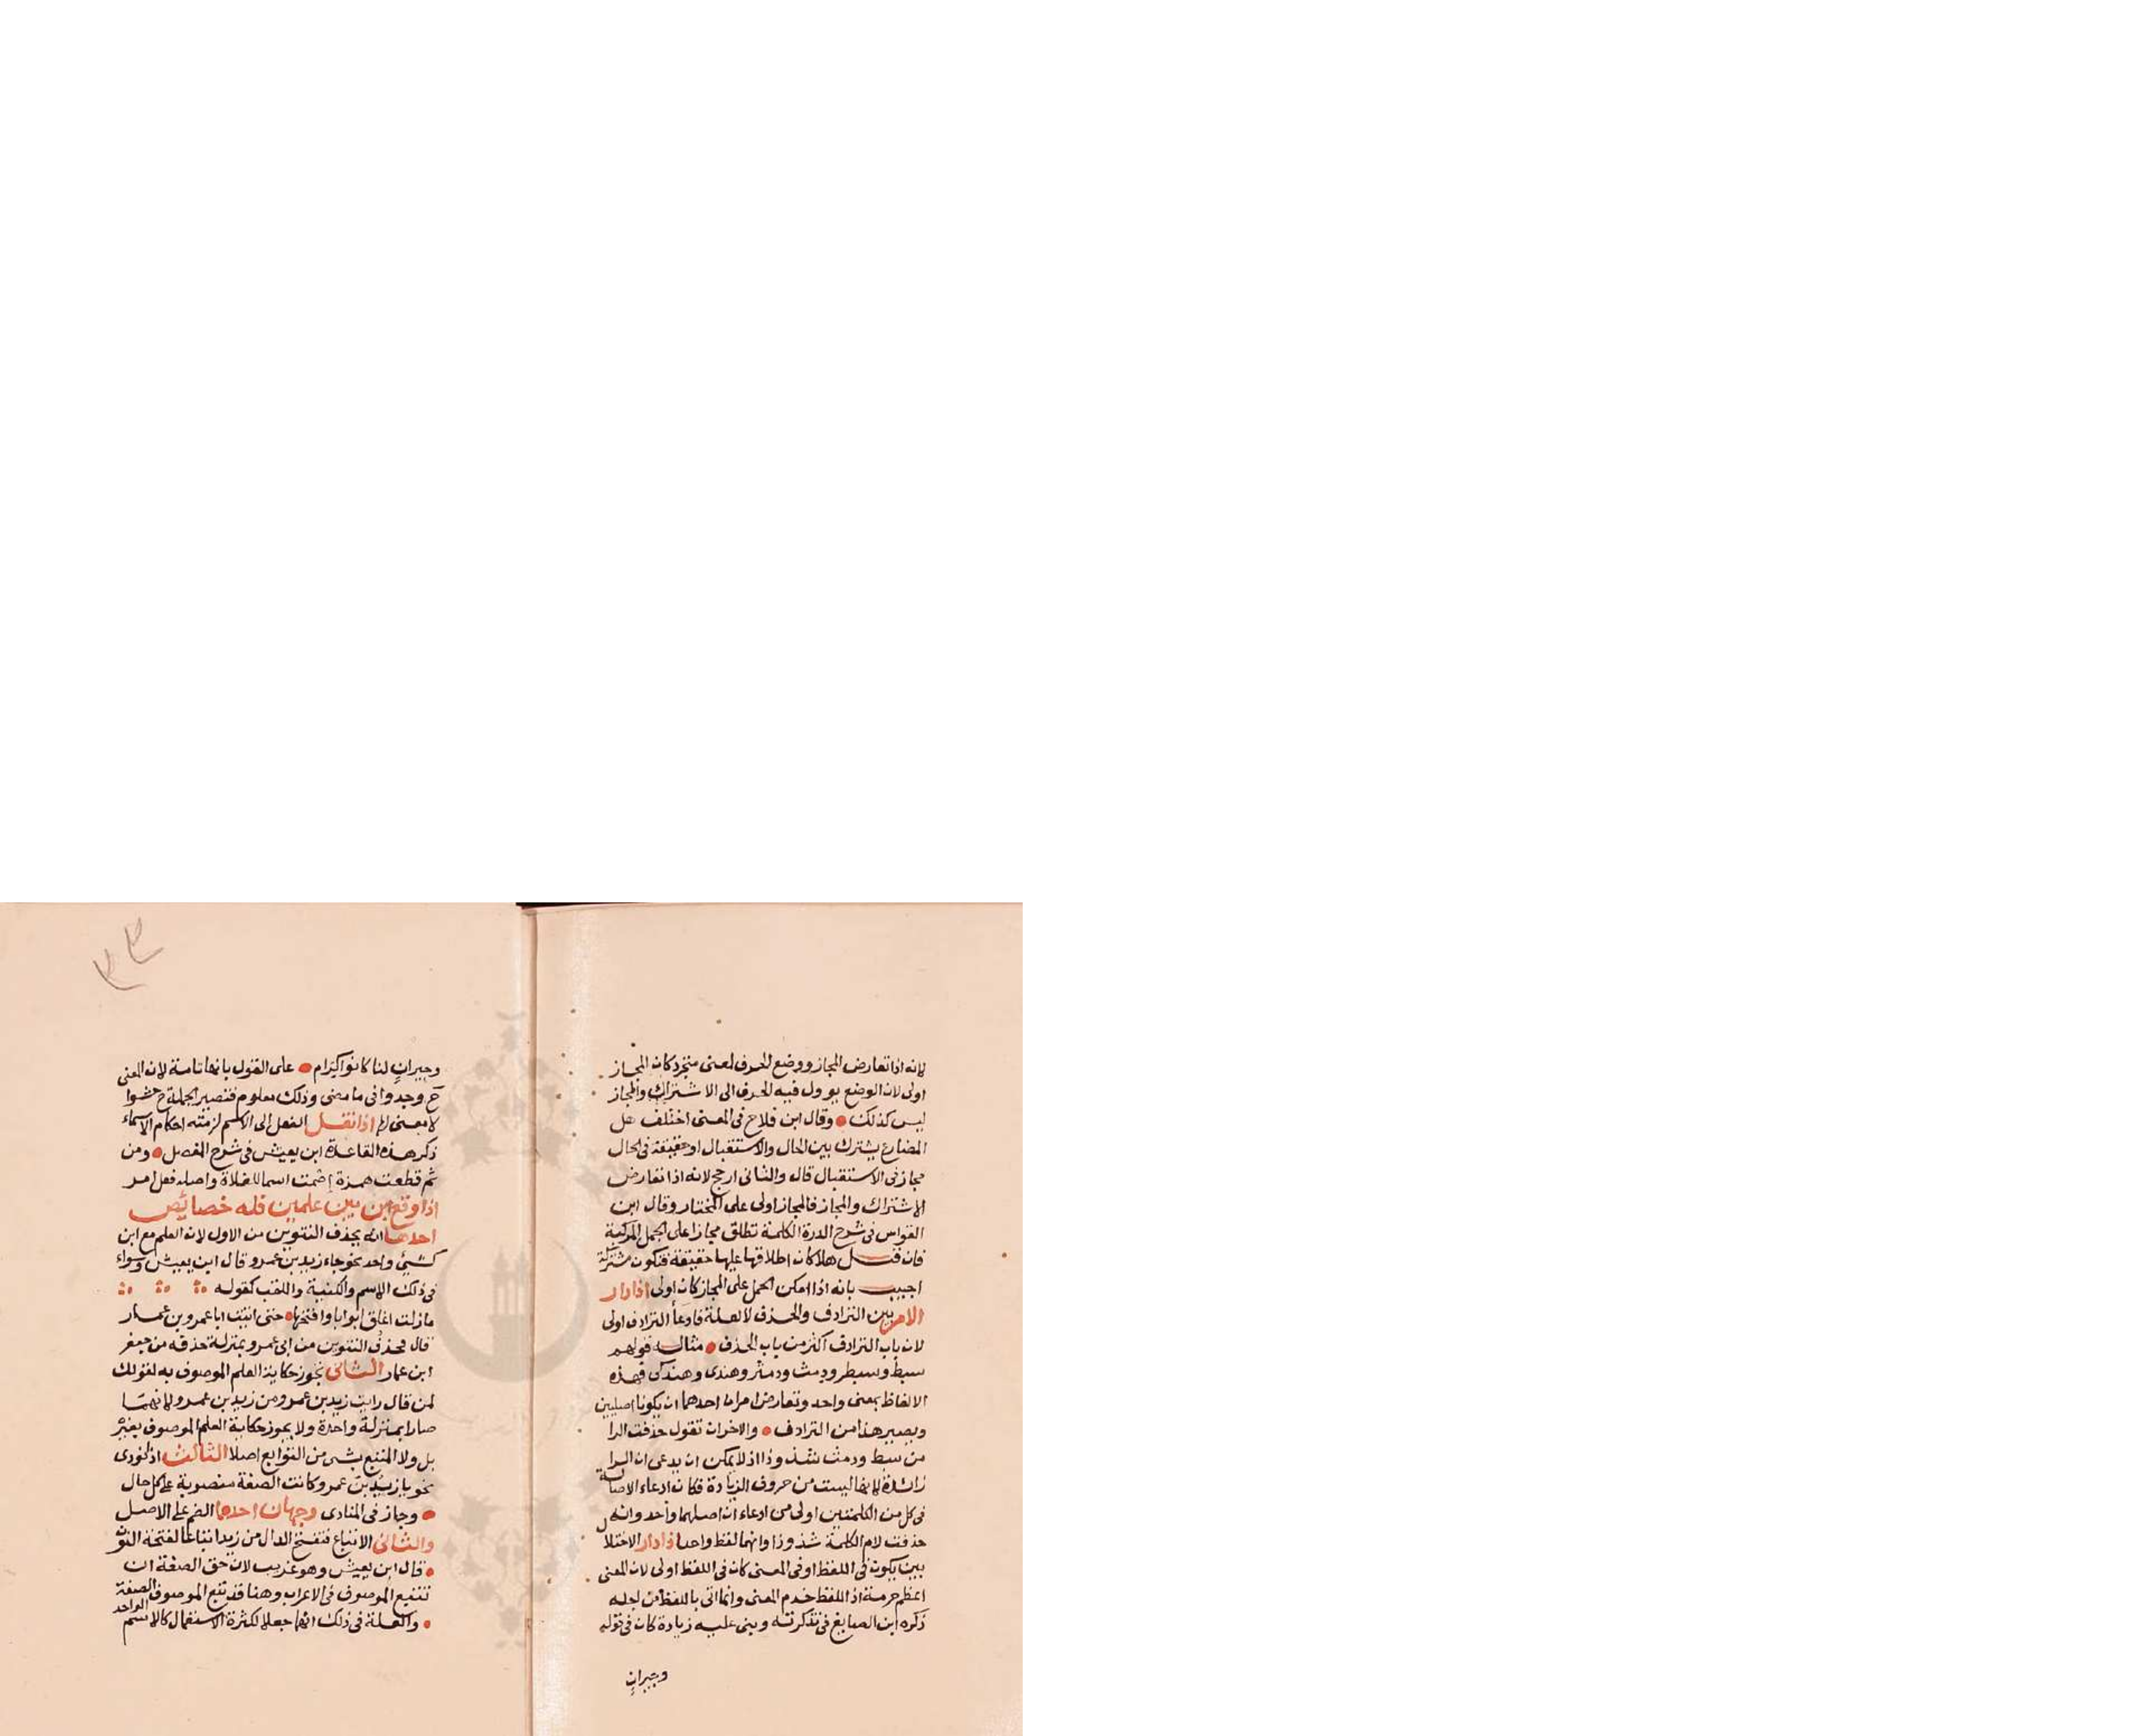 لانه اذا تعارض المجاز ووضع الحرف لمعنى متجرد كان المجاز
اولى لان الوضع يوول فيه الحرف الى الاشتراك والمجاز
ليس كذلك وقال ابن فلاح فى المغنى اختلف هل
المضارع يشترك بين الحال والاستقبال او حقيقة فى الحال
مجاز فى الاستقبال قال والثانى ارجح لانه اذا تعارض
الاشتراك والمجاز فالمجاز اولى على المختار وقال ابن
القواس فى شرح الدرة الكلمة تطلق مجازا على الجمل المركبة
فان قيل هلا كان اطلاقها عليها حقيقة فتكون مشتركة
اجيب بانه اذا امكن الحمل على المجاز كان اولى اذا دار
الامر بين الترادف والحذف لا لعلة فادعا الترادف اولى
لان باب الترادف اكثر من باب الحذف مثاله قولهم
سبط وسبطر ودمث ودمثر وهندى وهندكى فهذه
الالفاظ بمعنى واحد وتعارض امران احدهما ان يكونا اصليين
ويصير هذا من الترادف والاخر ان تقول حذفت الرا
من سبط ودمث شذوذا اذ لا يمكن ان يدعى ان الرا
زائدة لانها ليست من حروف الزيادة فكان ادعاء الاصالة
فى كل من الكلمتين اولى من ادعاء ان اصلهما واحد وانه
حذفت لام الكلمة شذوذا وانهما لفظ واحد اذا دار الاختلال
بين يكون فى اللفظ او فى المعنى كان فى اللفظ اولى لان المعنى
اعظم حرمة اذ اللفظ خدم المعنى وانما اتى باللفظ من اجله
ذكره ابن الصايغ فى تذكرته وبنى عليه زيادة كان فى قوله
وجيرانٍ
٣٣
وجيرانٍ لنا كانوا كرام على القول بانها تامة لان المعنى
ح وجدوا فى ما مضى وذلك معلوم فتصير الجملة ح حشوا
لا معنى لها اذا نقل الفعل الى الاسم لزمته احكام الاسماء
ذكر هذه القاعدة ابن يعيش فى شرح المفصل ومن
ثم قطعت همزة إصمت اسما للفلاة واصله فعل امر
اذا وقع ابن بين علمين فله خصائص
احدها انه يحذف التنوين من الاول لان العلم مع ابن
كشيئ واحد نحو جاء زيد بن عمرو قال ابن يعيش وسواء
فى ذلك الاسم والكنية واللقب كقوله
مازلت اغلق ابوابا وافتحها حتى اتيت ابا عمرو بن عمار
قال فحذف التنوين من ابى عمرو بمنزلة حذفه من جعفر
ابن عمار الثانى تجوز حكاية العلم الموصوف به لقولك
لمن قال رايت زيد بن عمرو من زيد بن عمرو لانهما
صارا بمنزلة واحدة ولا يجوز حكاية العلم الموصوف بغيره
بل ولا المتبع بشى من التوابع اصلا الثالث اذا نودى
نحو يا زيد بن عمرو كانت الصفة منصوبة على كل حال
وجاز فى المنادى وجهان احدهما الضم على الاصل
والثانى الاتباع فتفتح الدال من زيد اتباعا لفتحة النون
قال ابن يعيش وهو غريب لان حق الصفة ان
تتبع الموصوف فى الاعراب وهنا قد تبع الموصوف الصفة
والعلة فى ذلك انهما جعلا لكثرة الاستعمال كالاسم الواحد